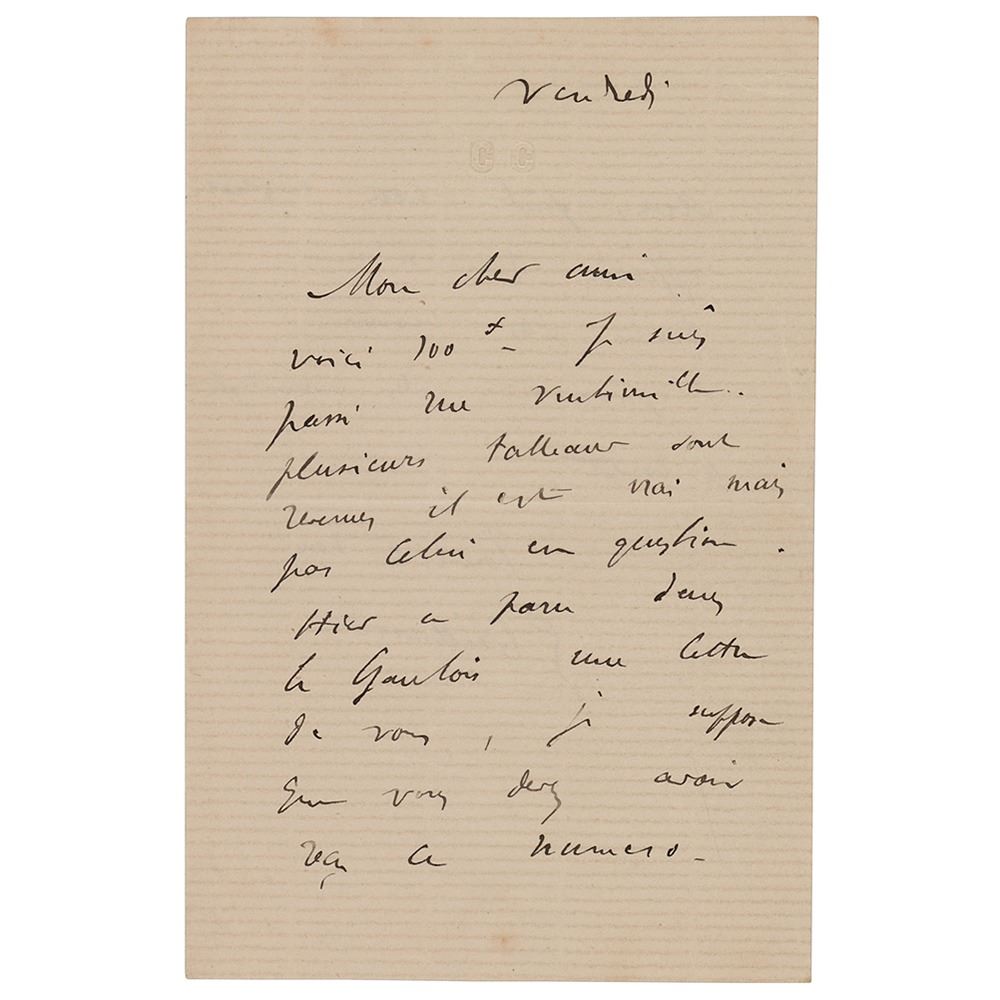 Vendredi
CC
Mon cher ami
voici 100 f – Je suis
passé rue Vintimille..
plusieurs tableaux sont
revenus il est vrai mais
pas celui en question.
Hier a paru dans
le Gaulois une lettre
de vous, je suppose
que vous devez avoir
reçu ce numero –